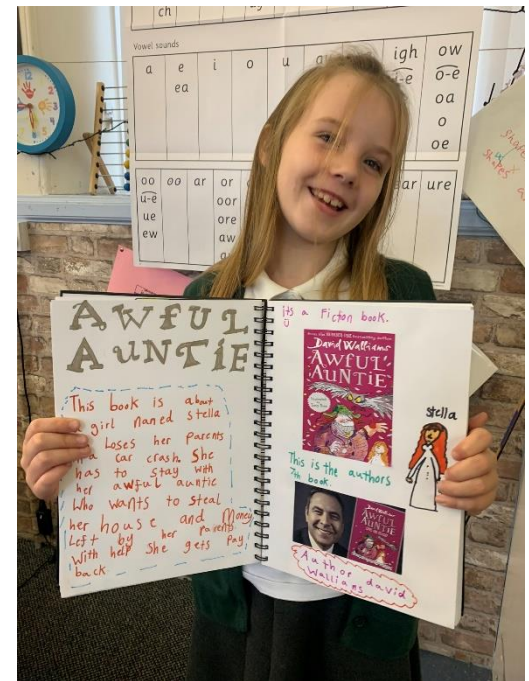 ch
Vowel sounds
a e i o u igh ow
ea i-e o-e
oa
o
oe
oo oo ar or ar ure
u-e oor
ue ore
ew aw
AWFUL
AUNTIE
This book is about
girl naned stella
Loses her parents
a car crash She
has to stay with
her awful auntie
Who wants to steal
her house and Money
Left by her parents
With help She gets pay
back.
its a Ficton book.
David Walliams
AWFUL
AUNTIE
stella
This is the authors
7th book.
David Walliams
AWFUL
AUNTIE
Author david
Walliams